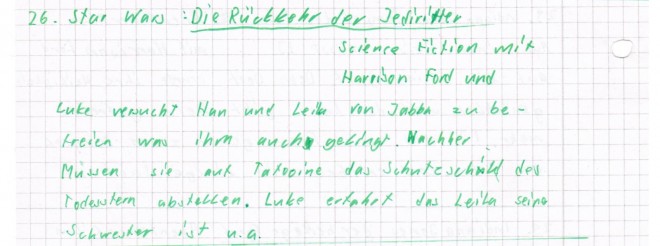 26. Star Wars : Die Rückkehr der Jediritter
Science Fiction mit
Harrison Ford und
Luke versucht Han und Leila von Jabba zu be-
freien was ihm auch gelingt. Nachher
Müssen sie auf Tatooine das Schutzschild des
Todesstern abstellen. Luke erfahrt das Leila seine
Schwester ist u.a.